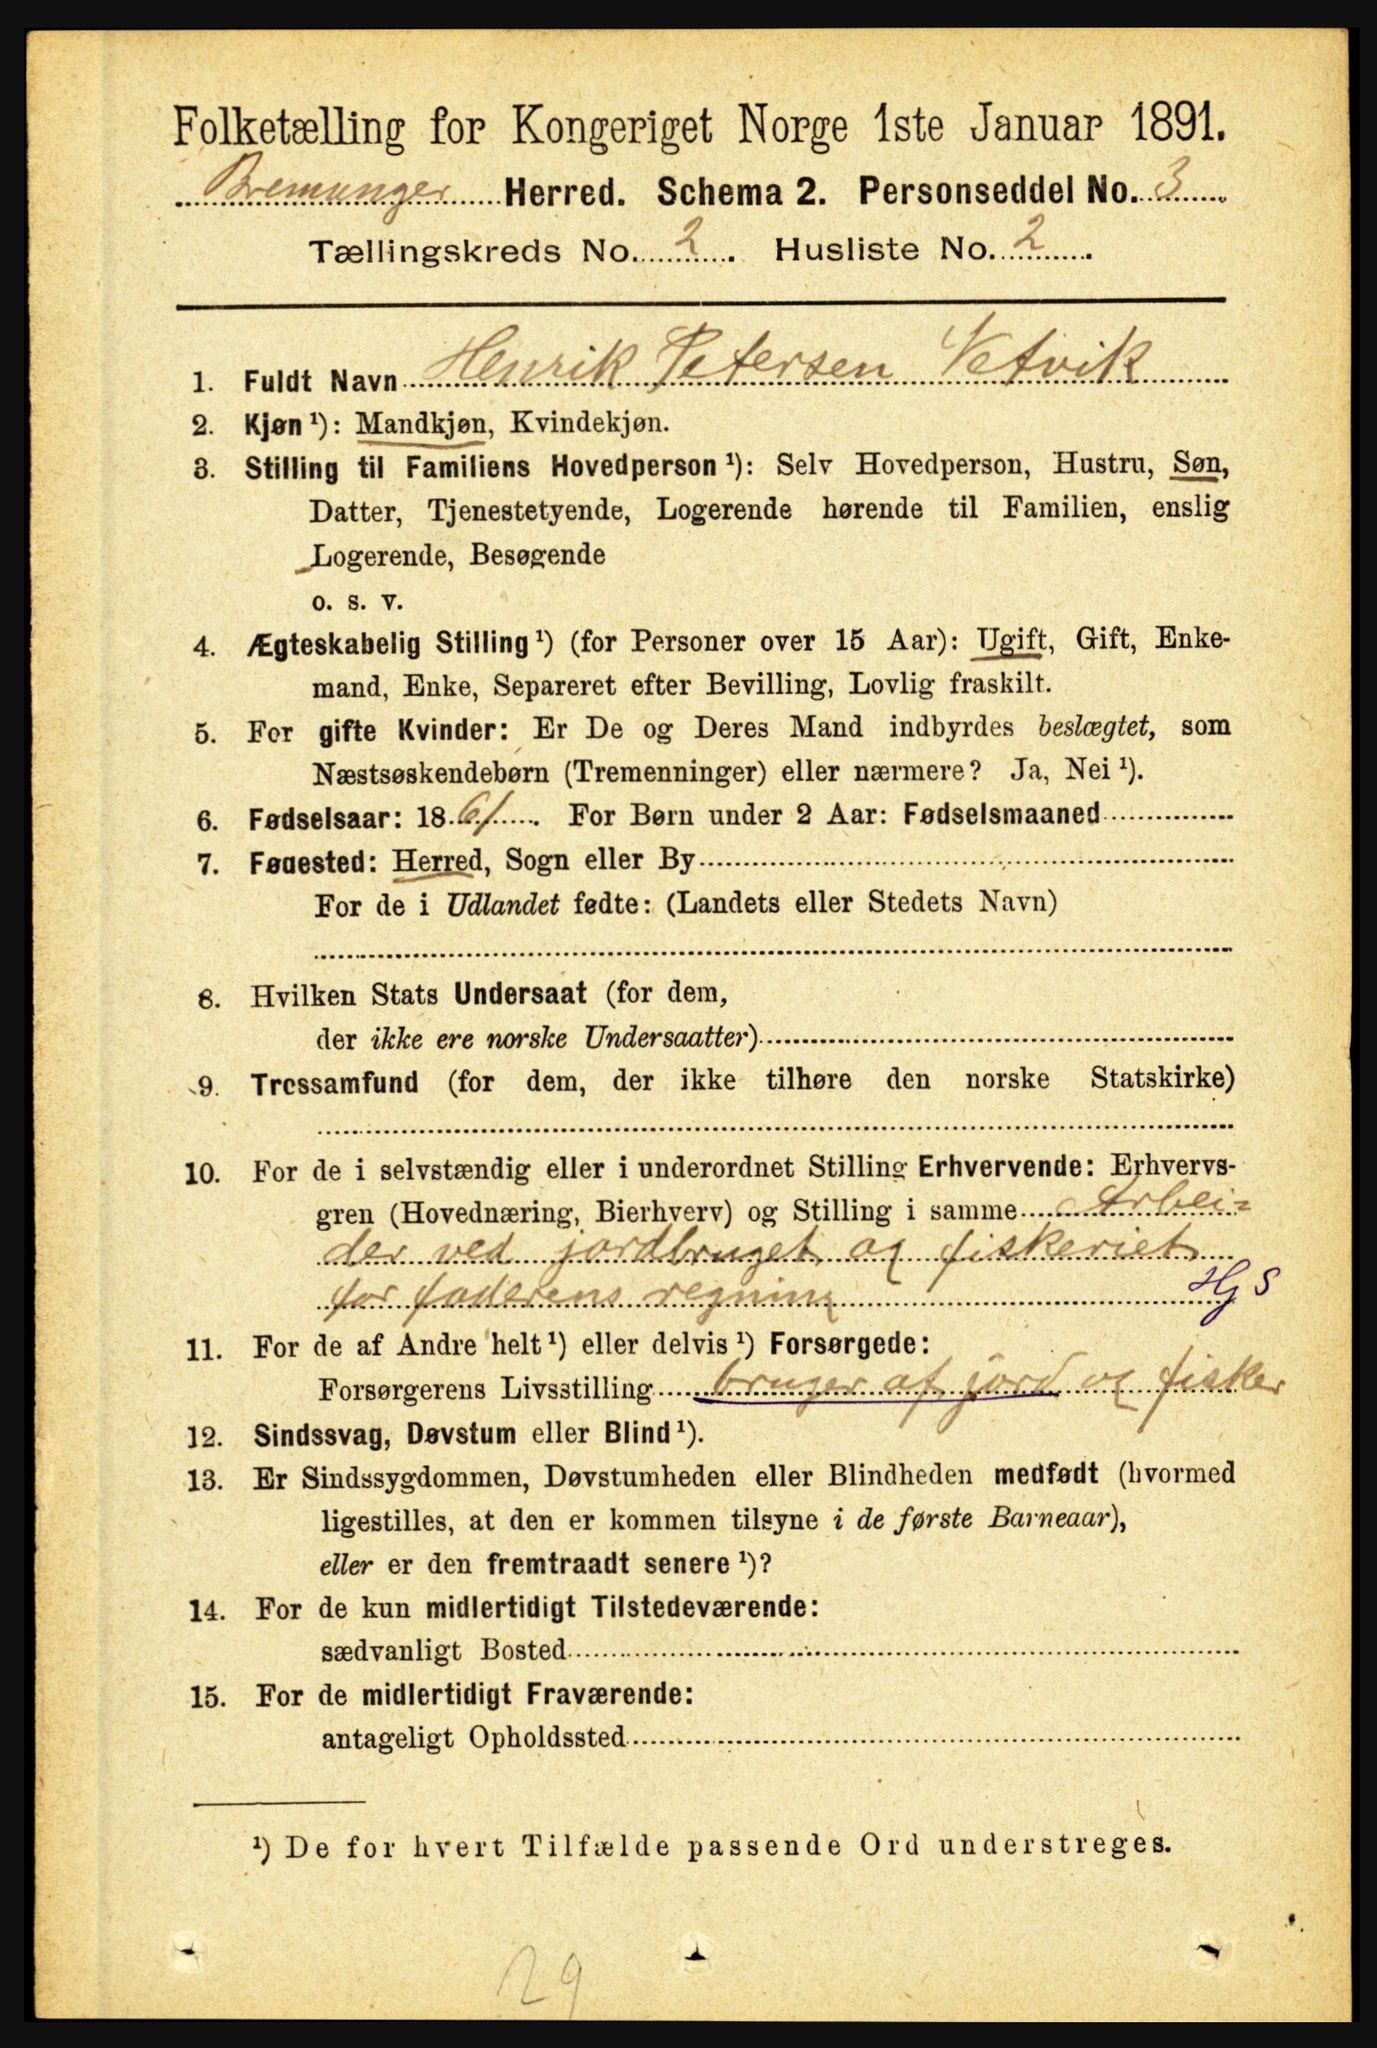 Folketælling for Kongeriget Norge 1ste Januar 1891.
Bremanger Herred. Schema 2. Personseddel No. 3
Tællingskreds No. 2. Husliste No. 2.
1. Fuldt Navn Henrik Petersen Vetvik
2. Kjøn¹): Mandkjøn, Kvindekjøn.
3. Stilling til Familiens Hovedperson¹): Selv Hovedperson, Hustru, Søn,
Datter, Tjenestetyende, Logerende hørende til Familien, enslig
Logerende, Besøgende
o. s. v.
4. Ægteskabelig Stilling¹) (for Personer over 15 Aar): Ugift, Gift, Enke-
mand, Enke, Separeret efter Bevilling, Lovlig fraskilt.
5. For gifte Kvinder: Er De og Deres Mand indbyrdes beslægtet, som
Næstsøskendebørn (Tremenninger) eller nærmere? Ja, Nei¹).
6. Fødselsaar: 1861. For Børn under 2 Aar: Fødselsmaaned
7. Fødested: Herred, Sogn eller By
For de i Udlandet fødte: (Landets eller Stedets Navn)
8. Hvilken Stats Undersaat (for dem,
der ikke ere norske Undersaatter)
9. Trossamfund (for dem, der ikke tilhøre den norske Statskirke)
10. For de i selvstændig eller i underordnet Stilling Erhvervende: Erhvervs-
gren (Hovednæring, Bierhverv) og Stilling i samme Arbei-
der ved jordbruget og fiskeriet
for faderens regning
Hj S
11. For de af Andre helt¹) eller delvis¹) Forsørgede:
Forsørgerens Livsstilling bruger af jord og fisker
12. Sindssvag, Døvstum eller Blind¹).
13. Er Sindssygdommen, Døvstumheden eller Blindheden medfødt (hvormed
ligestilles, at den er kommen tilsyne i de første Barneaar),
eller er den fremtraadt senere¹)?
14. For de kun midlertidigt Tilstedeværende:
sædvanligt Bosted
15. For de midlertidigt Fraværende:
antageligt Opholdssted
¹) De for hvert Tilfælde passende Ord understreges.
29